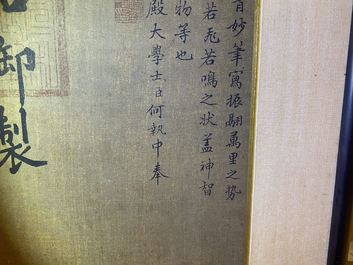 百妙筆寫振翮萬里之勢
若飛若鳴之状蓋神智
物等也
殿大學士臣何執中奉
御製